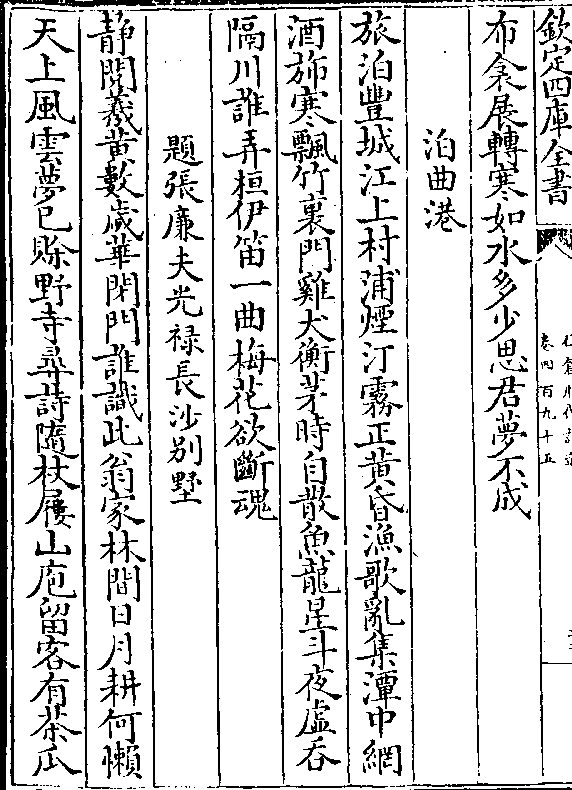 欽定四庫全書
卷四百九十五
布衾展轉寒如水多少思君夢不成
泊曲港
旅泊豐城江上村浦煙汀霧正黃昏漁歌亂集潭中網
酒斾寒飄竹裏門雞犬衡茅時自散魚龍星斗夜虛吞
隔川誰弄桓伊笛一曲梅花欲斷魂
題張廉夫光祿長沙别墅
静閱羲黄數歲華閉門誰識此翁家林間日月耕何懶
天上風雲夢已賒野寺尋詩隨杖屨山庖留客有茶瓜